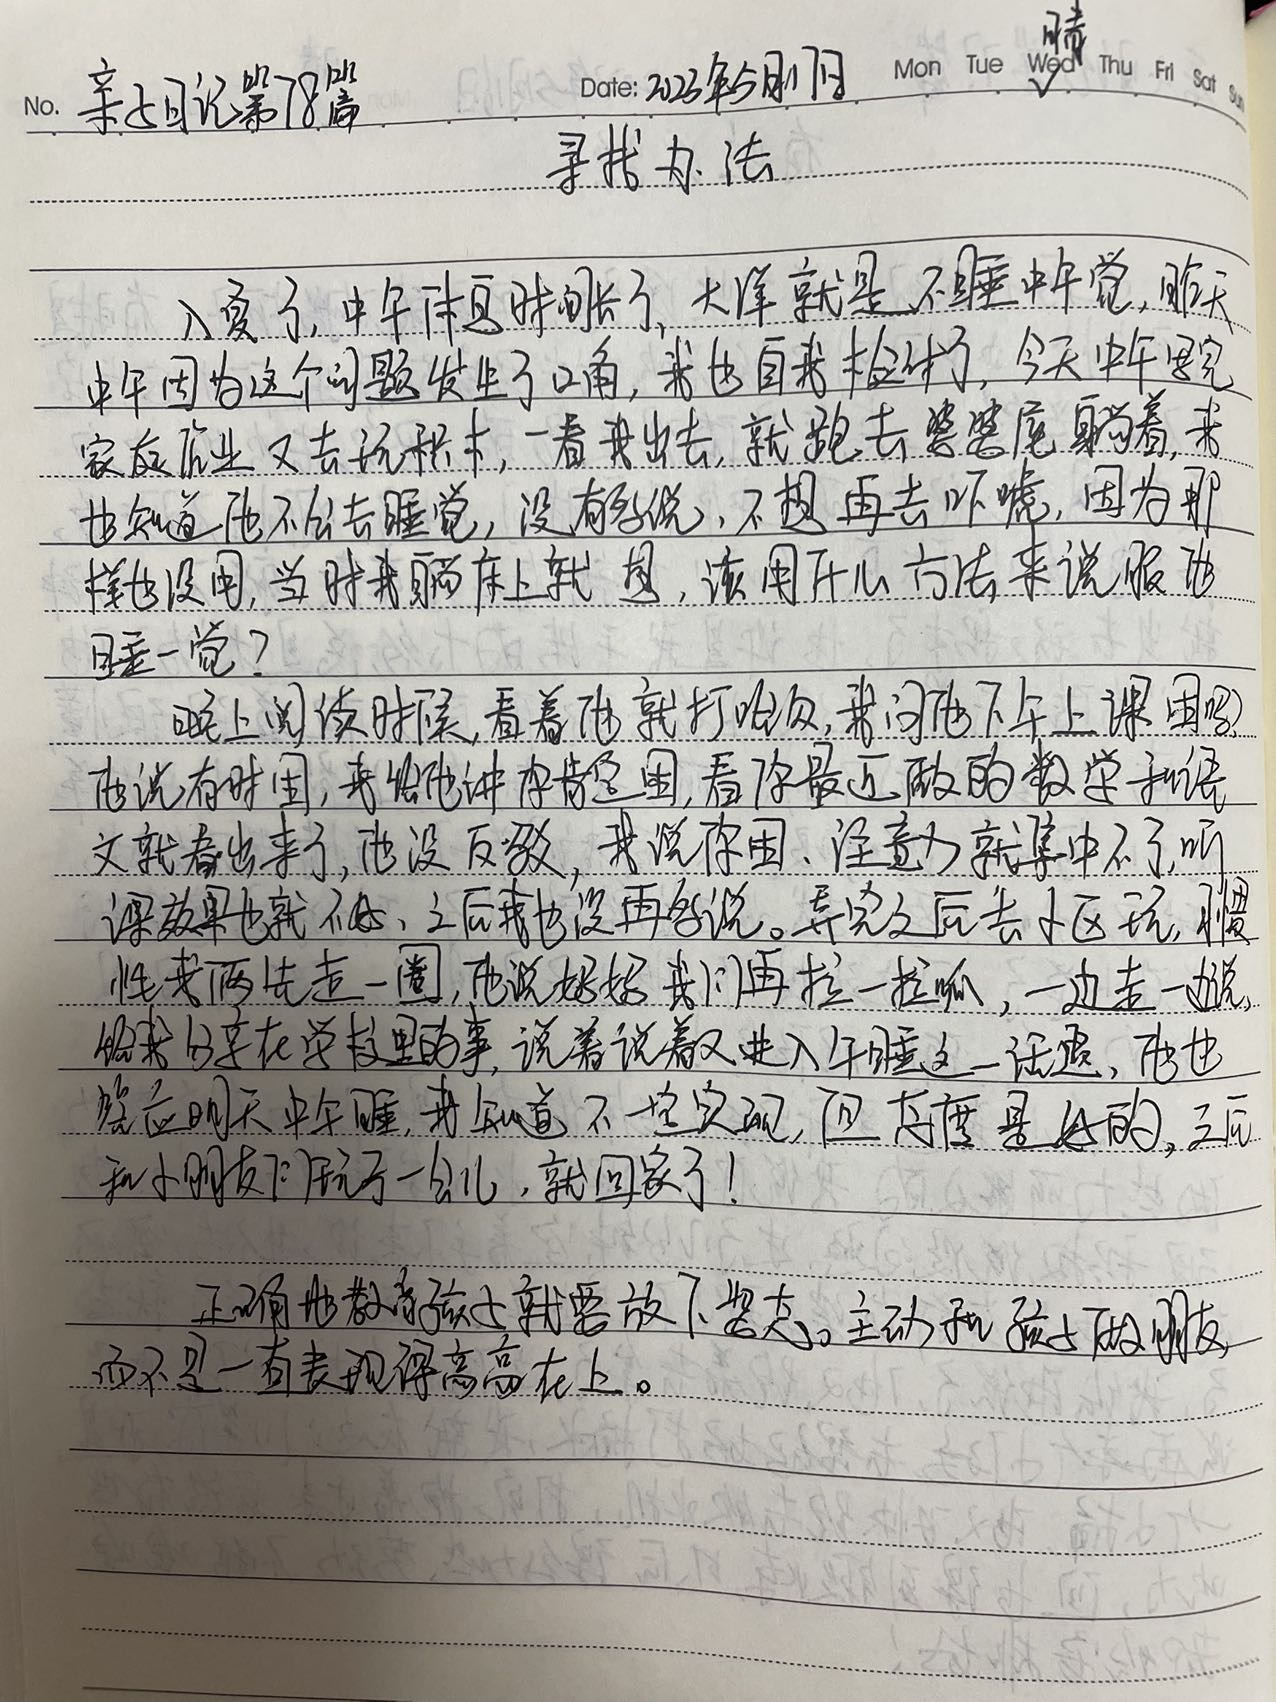 No. 亲子日记第78篇 Date: 2023年5月17日 Mon Tue Wed Thu Fri Sat Sun 晴
寻找办法
入夏了,中午休息时间长了,大洋就是不睡中午觉,昨天
中午因为这个问题发生了口角,我也自我检讨了,今天中午写完
家庭作业又去玩积木,一看我出去,就跑去婆婆屋躺着,我
也知道他不会去睡觉,没有多说,不想再去吓唬,因为那
样也没用,当时我躺床上就想,该用什么方法来说服他
睡一觉?
晚上阅读时候,看着他就打哈欠,我问他下午上课困吗?
他说有时困,我给他讲你肯定困,看你最近做的数学和语
文就看出来了,他没反驳,我说你困、注意力就集中不了,听
课效果也就不好、之后我也没再多说。弄完之后去小区玩,惯
性我两先走一圈,他说好好我们再拉一拉呱,一边走一边说,
给我分享在学校里的事,说着说着又进入午睡这一话题,他也
答应明天中午睡,我知道不一定实现,但态度是好的,之后
和小朋友们玩了一会儿,就回家了!
正确地教育孩子就要放下姿态。主动和孩子做朋友,
而不是一直表现得高高在上。